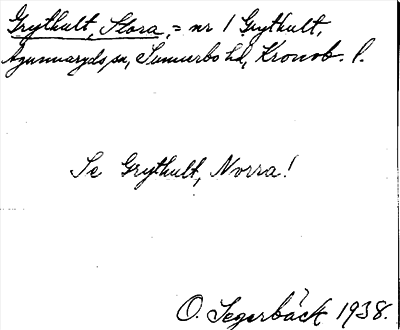 Grythult, Stora, = nr 1 Grythult,
Agunnaryds sn, Sunnerbo hd, Kronob. l.
Se Grythult, Norra!
O. Segerbäck 1938.